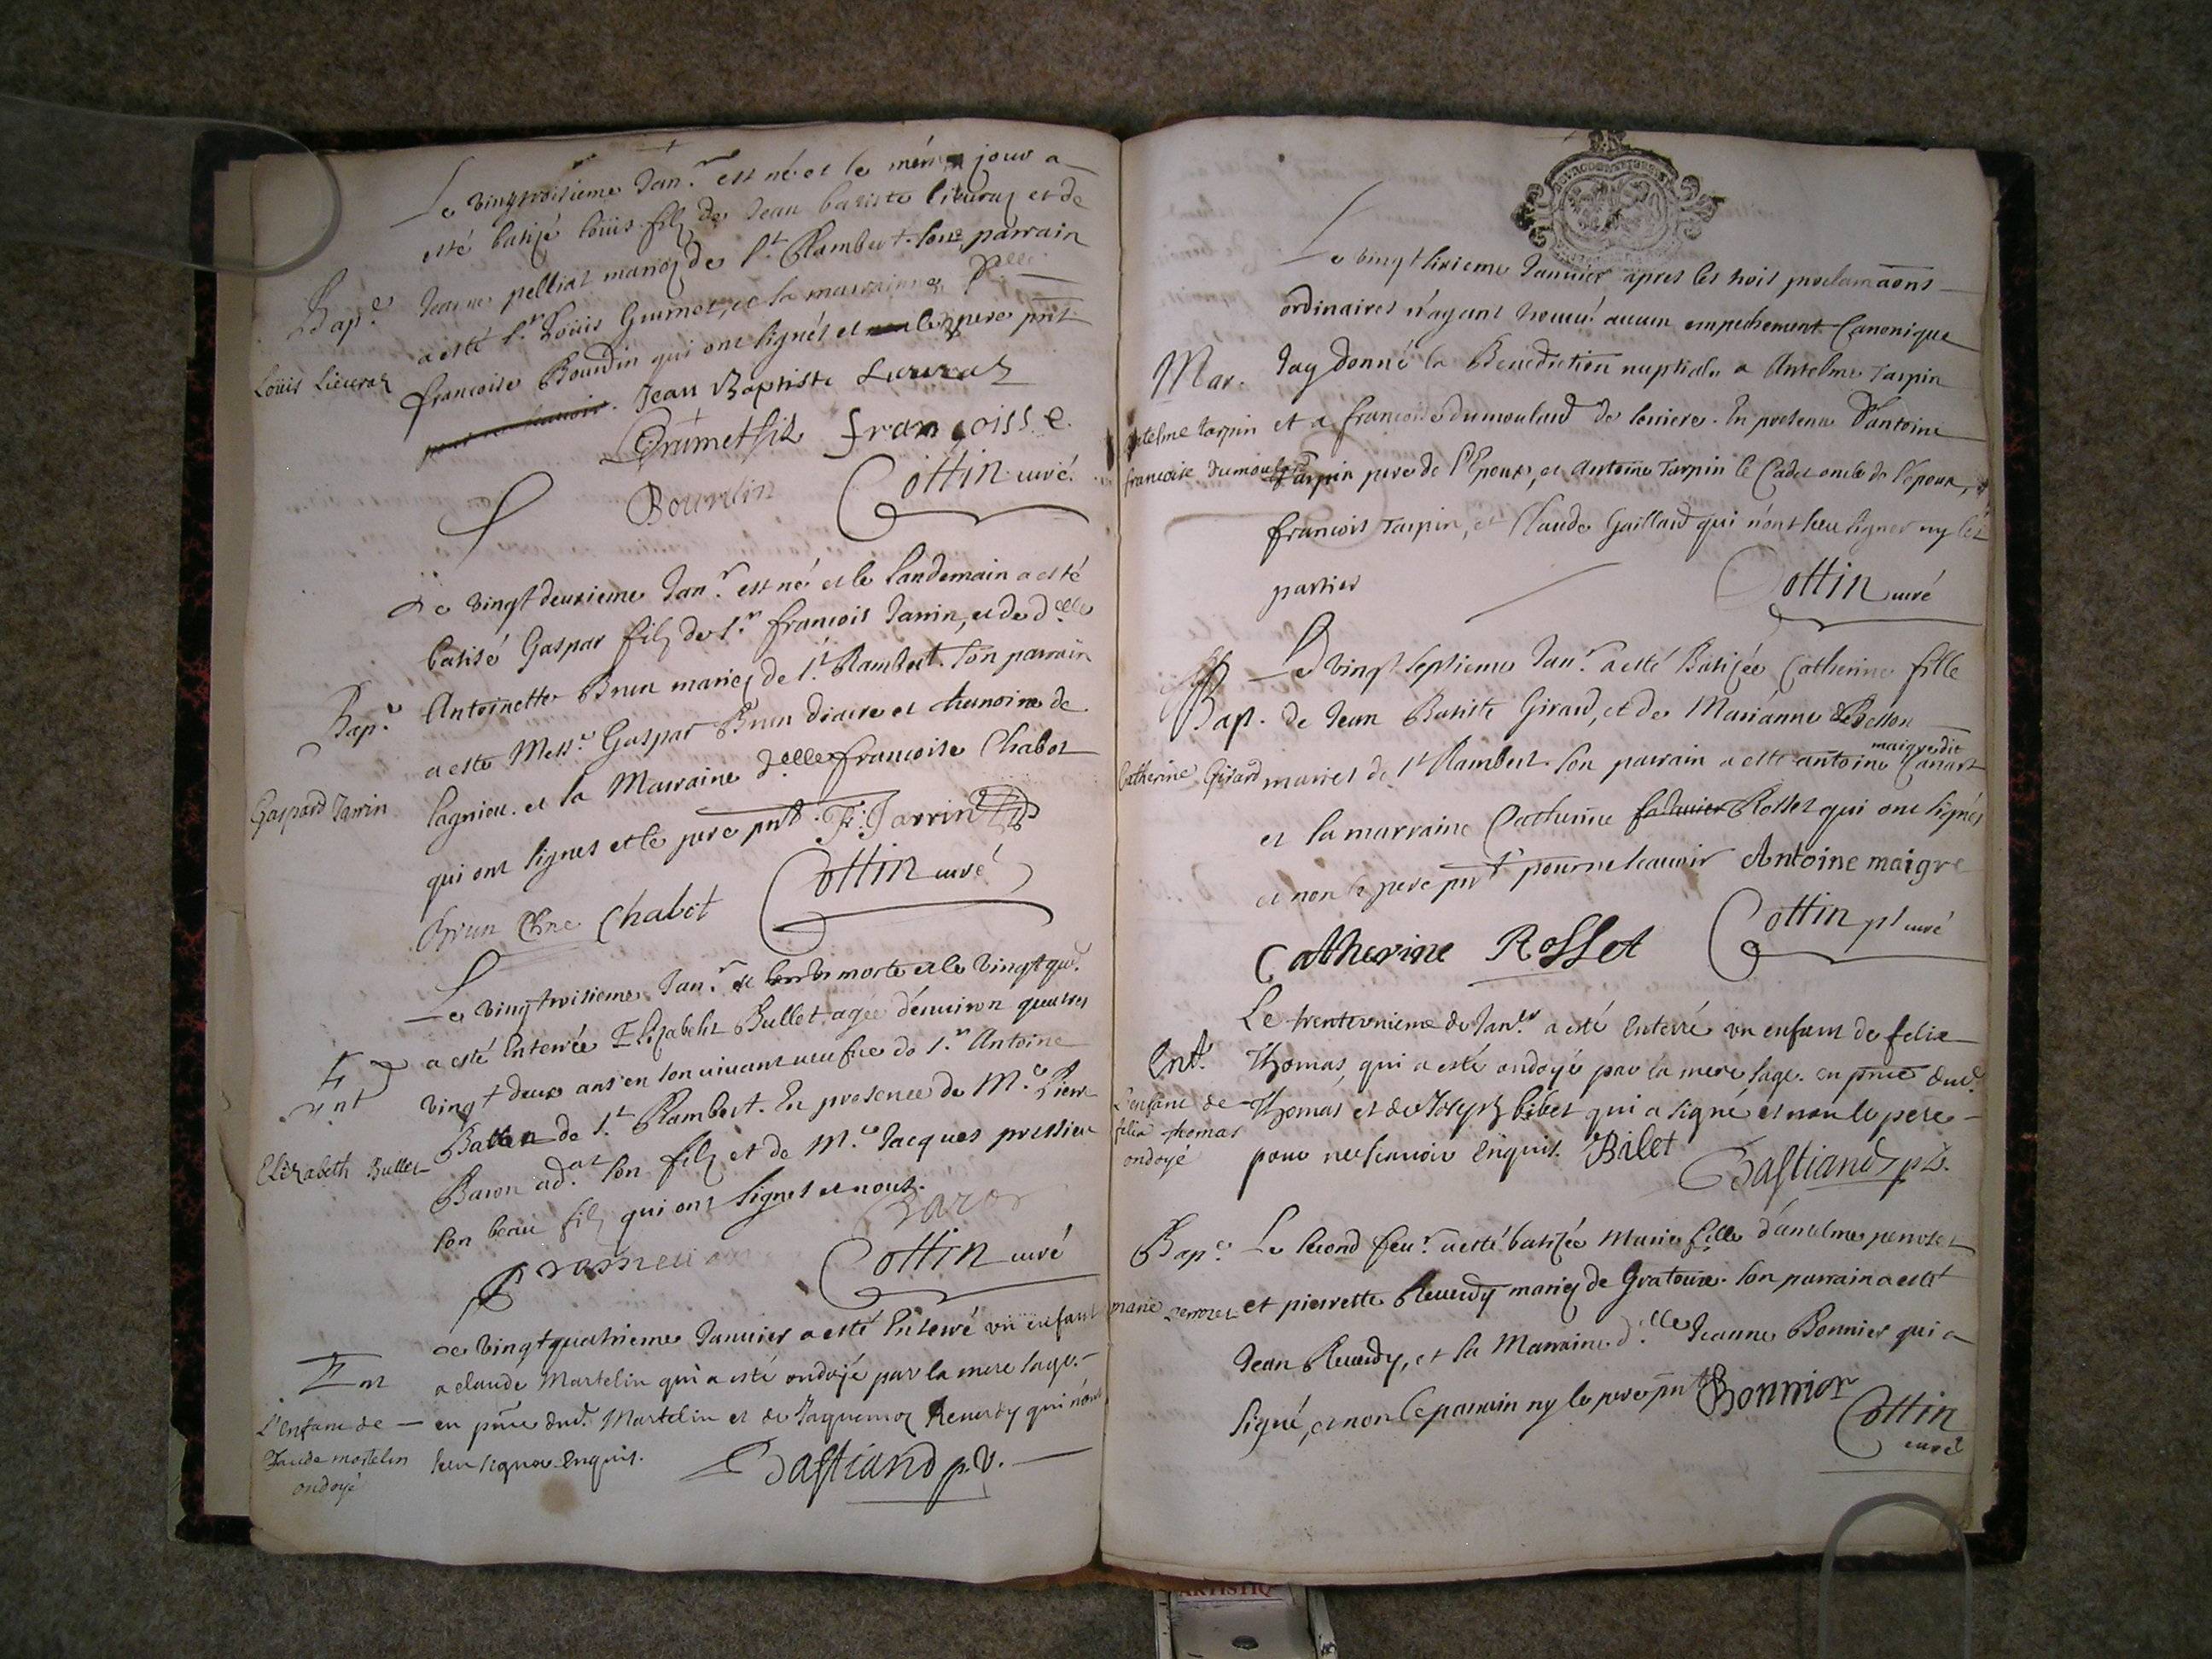 Le vingtroisieme Jan.r est né et le même jour a
esté batisé Loüis fils de Jean batiste lieuraz et de
Bap.e Jeanne pelliat mariez de S.t Rambert. Son parrain
a esté S.r Loüis Grumet, et la marrainne D.elle
Loüis Lieuraz
francoise Bourdin qui ont signés et le pere pnt
Jean Baptiste Lieuraz
Grumet fils françoisse
Bourdin Cottin curé.
Le vingt deuxieme Jan.r est né et le landemain a esté
batisé Gaspar fils de S.r francois Jarrin, et de d.elle
Bap.e Antoinette Brun mariez de S.t Rambert. Son parrain
a esté Mess.e Gaspar Brun diacre et chanoine de
lagnieu. et la Marraine d.elle francoise Chabot
Gaspard Jarrin
qui ont signes et le pere pnt. Fr: Jarrin
Brun Chne Chabot Cottin curé
Le vingtroisieme Jan.r morte et le vingt qua.
a esté Enterrée Elizabeht Bullet agée d'environ quatres
Ent
vingt deux ans en son vivant veufve de S.r Antoine
Baron de S.t Rambert. En presence de M.e Pierre
Elizabeth Bullet
Baron ad.at son fils et de M.e Jacques pressieu
son beau fils qui ont signes et nous.
Baron
Cottin curé
Le vingtquatrieme Janvier a esté Enterré un enfant
Ent a claude Martelin qui a esté ondoyé par la mere sage.
L'enfant de en pnce dud. Martelin et de Jaquemoz Reverdy qui n'ont
Claude martelin sceu signer Enquis. Bastiand p.v.
ondoyé
Le vingt sixieme Janvier apres les trois proclamaons
ordinaires n'ayant trouvé aucun empechement Canonique
Mar. Jay donné la Benediction nuptiale a Antelme Tarpin
Antelme tarpin et a francoise dumoulard de lorriere. En presence d'antoine
francoise dumoulard Tarpin pere de l'Epoux, et Antoine Tarpin le Cadet oncle de l'epoux,
francois Tarpin, et Claude Gaillard qui n'ont sceu signer ny les
parties Cottin curé
Le vingt septieme Jan.r a esté Batisée Catherine fille
Bap. de Jean Batiste Girard, et de Marianne Besson
maigre dit
Catherine Girard mariés de S.t Rambert. Son parrain a esté antoine Canart
et la marraine Catherine Rosset qui ont signés
et non le pere pnt pour ne scavoir Antoine maigre
Catherine Rosset Cottin pt curé
Le trenteunieme de Jan.er a esté Enterré un enfant de felix
Ent. Thomas, qui a esté ondoyé par la mere sage. en pnce dud.
L'enfant de Thomas et de Joseph bilet qui a signé et non le pere
felix thomas
ondoyé pour ne scavoir Enquis. Bilet
Bastiand p.v.
Bap.e Le second fev.r a esté batisée Marie fille d'antelme perrozet
marie perrozet et pierrette Reverdy mariez de Gratoux. Son parrain a esté
Jean Reverdy, et la Marraine d.elle Jeanne Bonnier qui a
signé, et non le parrain ny le pere pnt Bonnier
Cottin
curé